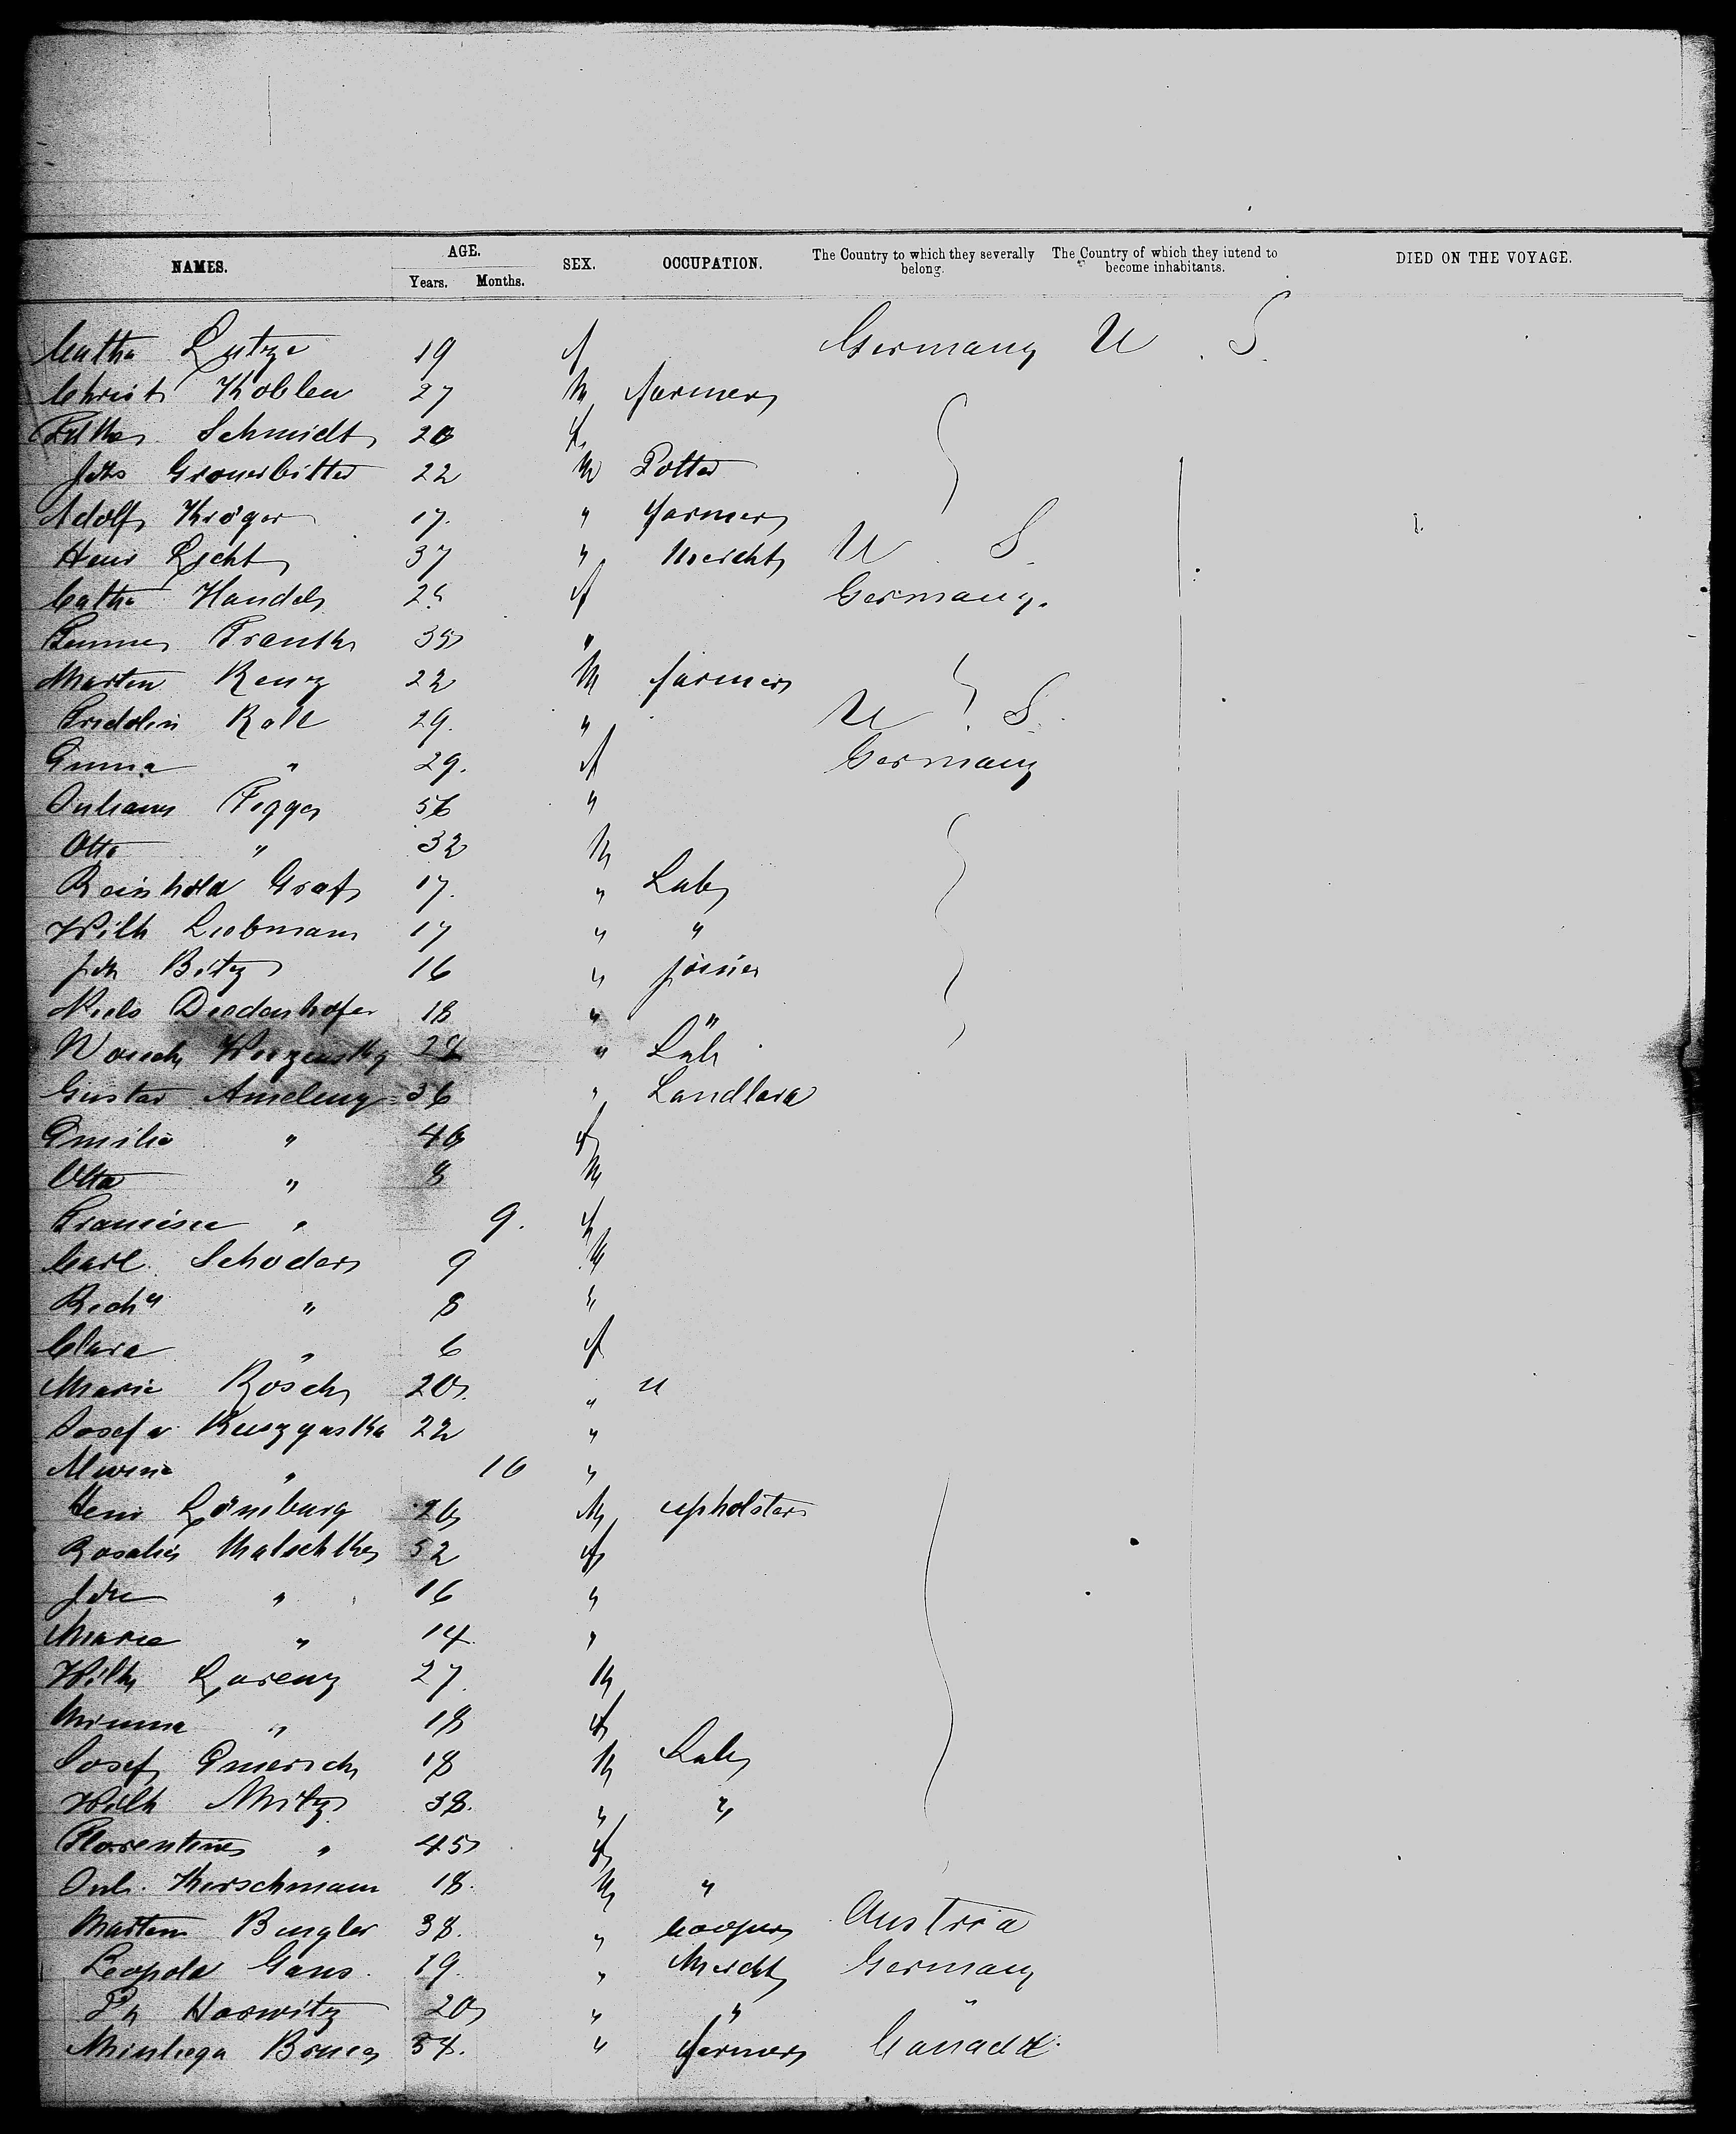 NAMES. AGE. SEX. OCCUPATION. The Country to which they severally belong. The Country of which they intend to become inhabitants. DIED ON THE VOYAGE.
Years. Months.
Catha Lutze 19 f Germany U. S.
Christ Koblen 27 M farmer
Schmidt 20 f
Johs 22 M Potter
Adolf Kröger 17. " farmer
Henr Licht 37 " Mercht U S.
Catha Handel f Germany.
Frank 35 "
Martin Renz 22 M farmer
Fridolin Roll 29. " U. S.
Emma " 29. f Germany
Figge 56 "
Otto " 32 M
Reinhold Graf 17. " Lab
Wilh Liebmann 17 " "
Joh Bitz 16 " joiner
Niels Diedenhofer 18 " "
28 " Lab
Gustav Ameling 36 " Landlord
Emilie " 40 f
Otto " 8 M
Francisca " 9. f
Carl Schoder 9 M
Richd " 8 "
Clara " 6 f
Marie Rösch 20. " "
Josefa 22 "
" 10 "
Henr Lömburg 26 M upholster
Rosalie Malschke 52 f
" 16 "
Marie " 14 "
Wilh Lorenz 27. M
Minna " 18 f
Josef Emerich 18 M Lab
Wilh Mitz 38. " "
Florentine " 45 f
Jul. Kirschmann 18. M "
Martin Bingler 38. " Cooper Austria
Leopold Gans. 19. " Mercht Germany
Ph Horwitz 20 " " "
Bruce 34. " farmer Canada.